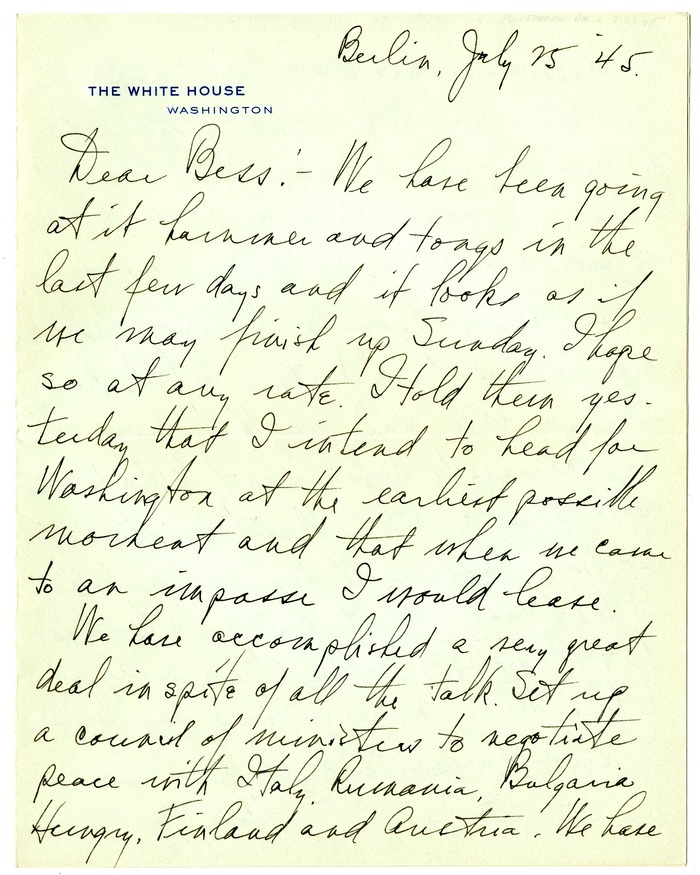 Berlin, July 25 '45.
THE WHITE HOUSE
WASHINGTON
Dear Bess:- We have been going
at it hammer and tongs in the
last few days and it looks as if
we may finish up Sunday. I hope
so at any rate. I told them yes-
terday that I intend to head for
Washington at the earliest possible
moment and that when we came
to an impasse I would leave.
We have accomplished a very great
deal in spite of all the talk. Set up
a council of ministers to negotiate
peace with Italy, Rumania, Bulgaria
Hungry, Finland and Austria. We have